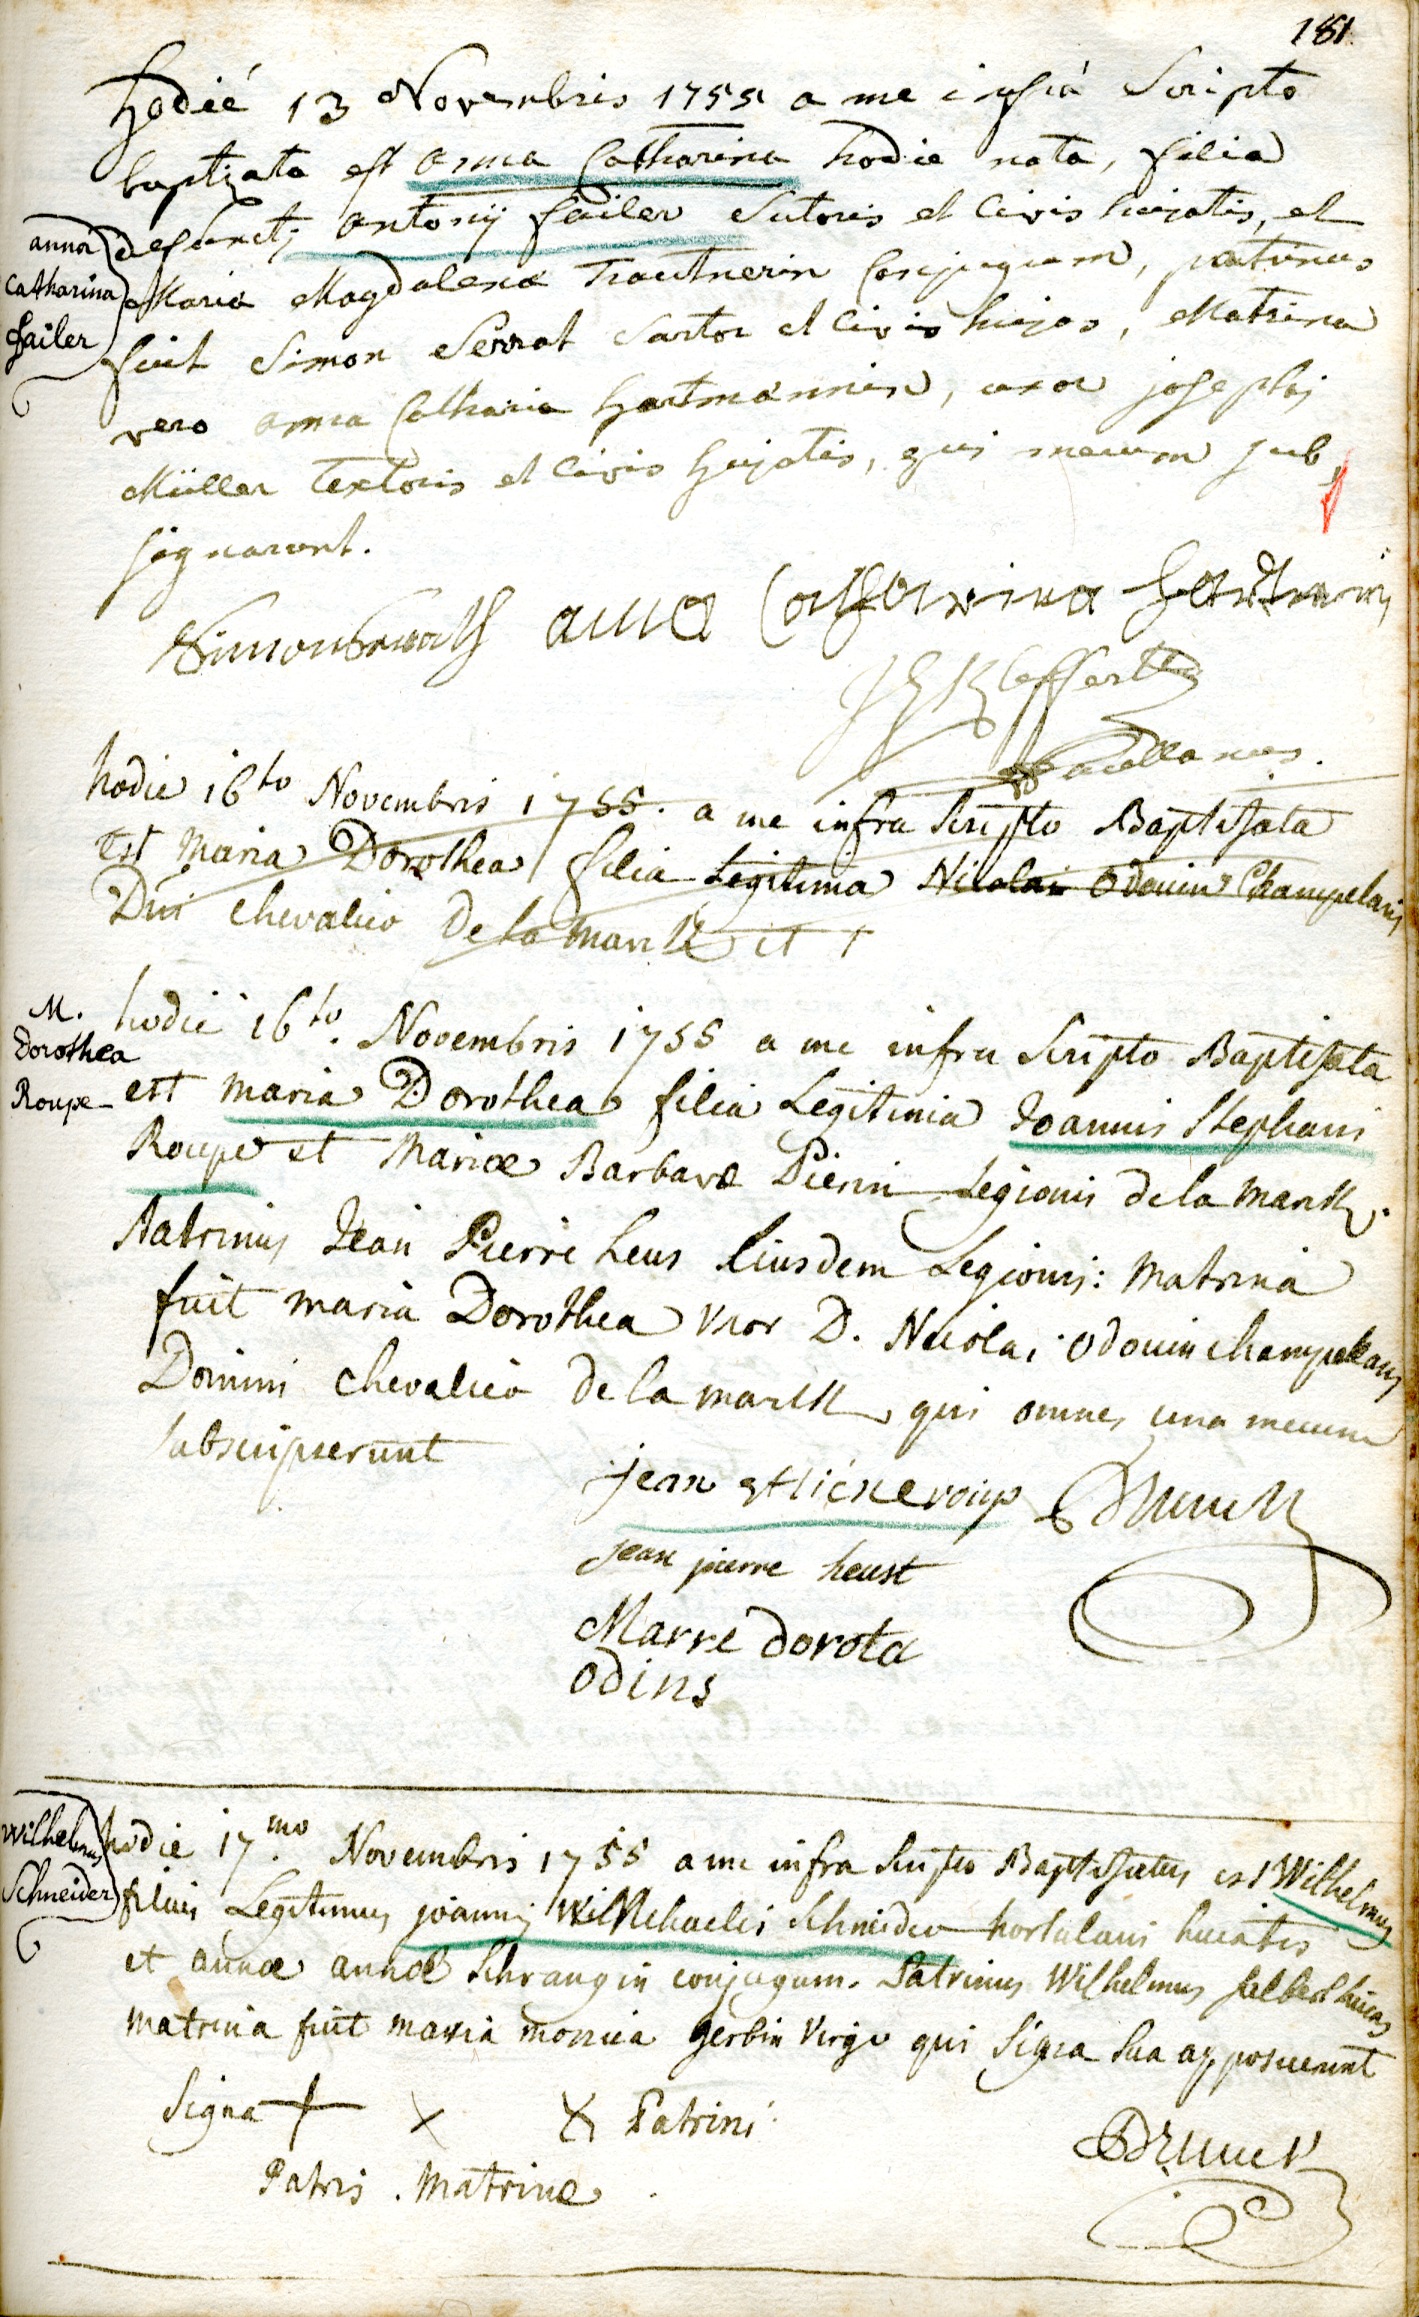 181.
Hodié 13 Novembris 1755 a me infrà Scripto
baptizata est anna Catharina hodie nata, filia
defuncti antonij Sailer Sutoris et Civis hujatis, et
Maria Magdalena Trautnerin Conjugum, patrinus
fuit Simon Serrat Sartor et Civis hujas, Matrina
vero anna Catharia Hartmannin, uxor josephi
Müller Textoris et Civis hujatis, qui mecum sub
signarunt.
anna
Catharina
Sailer
anna Catharina
Sacellanus.
hodie 16to Novembris 1755. a me infra Scripto Baptisata
Est Maria Dorothea filia Legitima Nicolai Odouin Champelaux
Dni chevalier De la Marck et
M.
Dorothea
Roupe
hodie 16to. Novembris 1755 a me infra Scripto Baptisata
est Maria Dorothea filia Legitimia Joannis Stephani
Roupe et Mariæ Barbaræ Pierin Legionis de la Marck.
Patrinus Jean Pierre heus Eiusdem Legionis: Matrina
fuit maria Dorothea Vxor D. Nicolai Odouin champelaux
Domini chevalier de la marck qui omnes una mecum
subscripserunt
jean
jean pierre heust
Marre dorota
odins
Wilhelmus
Schneider
hodie 17mo. Novembris 1755 a me infra Scripto Baptisatus est Wilhelmus
filius Legitimus joannis Michaelis Schneider hortulani huiatis
et annæ annæ Schrangin conjugum. Patrinus Wilhelmus
Matrina fuit maria monica gerbin Virgo qui Signa Sua apposuerunt
Signa + x x Patrini
Patris . Matrinæ